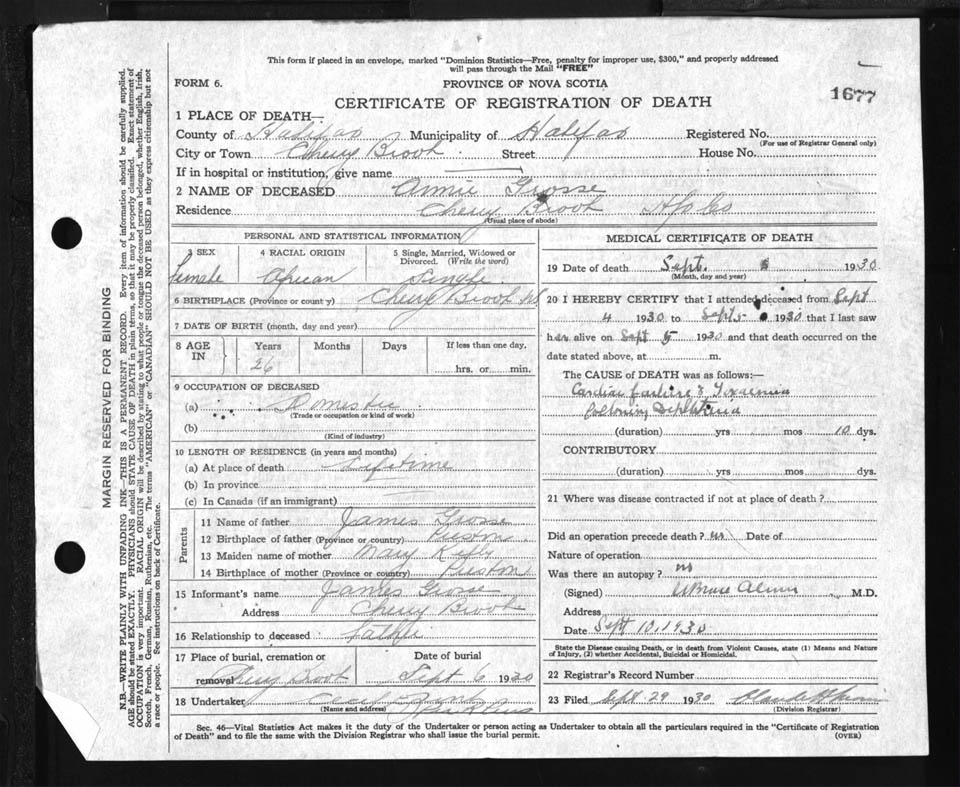 This form if placed in an envelope, marked "Dominion Statistics—Free, penalty for improper use, $300," and properly addressed
will pass through the Mail "FREE"
FORM 6.
PROVINCE OF NOVA SCOTIA
1677
CERTIFICATE OF REGISTRATION OF DEATH
1 PLACE OF DEATH—
County of Halifax Municipality of Halifax Registered No.
(For use of Registrar General only)
City or Town Cherry Brook Street House No.
If in hospital or institution, give name
2 NAME OF DECEASED Annie Grosse
Residence Cherry Brook Hfx Co
(Usual place of abode)
PERSONAL AND STATISTICAL INFORMATION
3 SEX 4 RACIAL ORIGIN 5 Single, Married, Widowed or
Divorced. (Write the word)
Female African Single
6 BIRTHPLACE (Province or county) Cherry Brook NS
7 DATE OF BIRTH (month, day and year)
8 AGE IN Years Months Days If less than one day,
26 hrs. or min.
9 OCCUPATION OF DECEASED
(a) Domestic
(Trade or occupation or kind of work)
(b)
(Kind of industry)
10 LENGTH OF RESIDENCE (in years and months)
(a) At place of death Lifetime
(b) In province
(c) In Canada (if an immigrant)
Parents
11 Name of father James Grosse
12 Birthplace of father (Province or country) Preston
13 Maiden name of mother Mary
14 Birthplace of mother (Province or country) Preston
15 Informant's name James Grosse
Address Cherry Brook
16 Relationship to deceased father
17 Place of burial, cremation or Date of burial
removal Cherry Brook Sept 6 1930
18 Undertaker Cecil
(Name and address)
MEDICAL CERTIFICATE OF DEATH
19 Date of death Sept. 1930
(Month, day and year)
20 I HEREBY CERTIFY that I attended deceased from Sept
4 1930 to Sept 1930 that I last saw
her alive on Sept 5 1930 and that death occurred on the
date stated above, at m.
The CAUSE of DEATH was as follows:—
Cardiac failure & Toxaemia
following Diphtheria
(duration) yrs mos 10 dys.
CONTRIBUTORY
(duration) yrs mos dys.
21 Where was disease contracted if not at place of death?
Did an operation precede death? no Date of
Nature of operation
Was there an autopsy? no
(Signed) M.D.
Address
Date Sept 10, 1930
State the Disease causing Death, or in death from Violent Causes, state (1) Means and Nature
of Injury, (2) whether Accidental, Suicidal or Homicidal.
22 Registrar's Record Number
23 Filed Sept 29 1930
(Division Registrar)
Sec. 46—Vital Statistics Act makes it the duty of the Undertaker or person acting as Undertaker to obtain all the particulars required in the "Certificate of Registration
of Death" and to file the same with the Division Registrar who shall issue the burial permit.
(OVER)
MARGIN RESERVED FOR BINDING
N.B.—WRITE PLAINLY WITH UNFADING INK—THIS IS A PERMANENT RECORD. Every item of information should be carefully supplied.
AGE should be stated EXACTLY. PHYSICIANS should STATE CAUSE OF DEATH in plain terms, so that it may be properly classified. Exact statement of
OCCUPATION is very important. RACIAL ORIGIN will be described by stating to what people or tongue the deceased person belonged, whether English, Irish,
Scotch, French, German, Russian, Ruthenian, etc. The terms "AMERICAN" or "CANADIAN" SHOULD NOT BE USED as they express citizenship but not
a race or people. See instructions on back of Certificate.